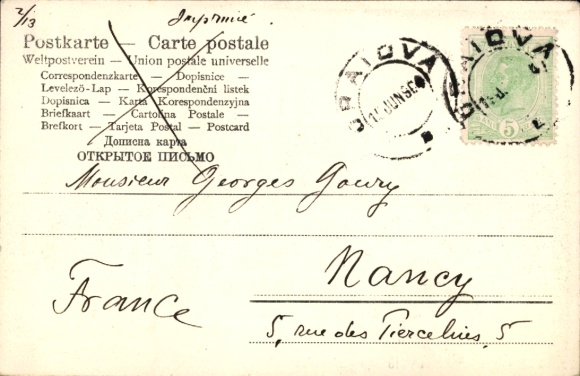 2/13
Imprimé.
Postkarte — Carte postale
Weltpostverein — Union postale universelle
Correspondenzkarte — Dopisnice —
Levelező-Lap — Korespondenční listek
Dopisnica — Karta Korespondenzyjna
Briefkaart — Cartolina Postale —
Brefkort — Tarjeta Postal — Postcard
Дописна карта
ОТКРЫТОЕ ПИСЬМО
CRAIOVA
CRAIOVA
5
Monsieur Georges Goury
Nancy
France
5, rue des Tiercelins, 5